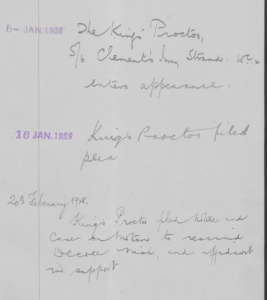 6 - JAN. 1928 The King's Proctor,
5/6 Clement's Inn, Strand. W.C.2
enters appearance.
18 JAN. 1928 King's Proctor filed
plea
20th February 1928.
King's Proctor filed Notice and
Case on Motion to rescind
Decree Nisi, and affidavit
in support